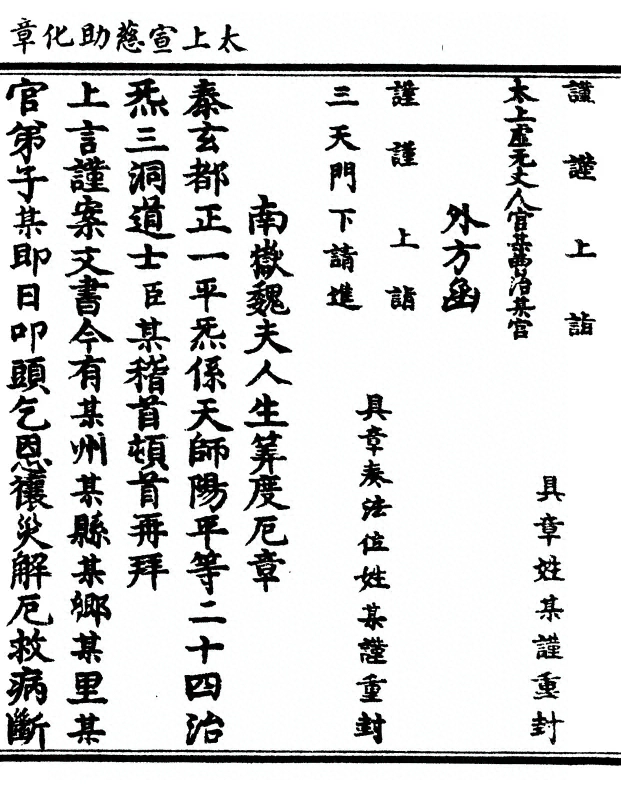 太上宣慈助化章
謹謹上詣
太上虛无丈人宫某曹治某官
具章姓某謹重封
外方函
謹謹上詣
三天門下請進
具章奏法位姓某謹重封
南嶽魏夫人生筭度厄章
泰玄都正一平炁係天師陽平等二十四治
炁三洞道士臣某稽首頓首再拜
上言謹案文書今有某州某縣某鄉某里某
官弟子某即日叩頭乞恩禳災解厄救病斷